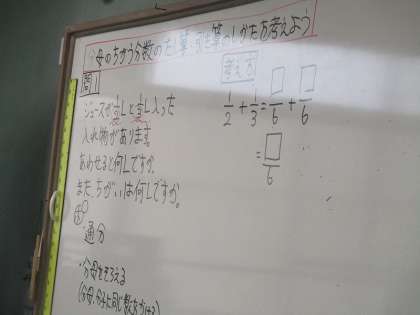 分母のちがう分数のたし算、ひき算のしかたを考えよう
問1
考え方
ジュースが1/2Lと1/3L入った
入れ物があります。
あわせると何Lですか。
また、ちがいは何Lですか。
1/2 + 1/3 = □/6 + □/6
= □/6
通分
・分母をそろえる
(分母、分子に同じ数をかける)